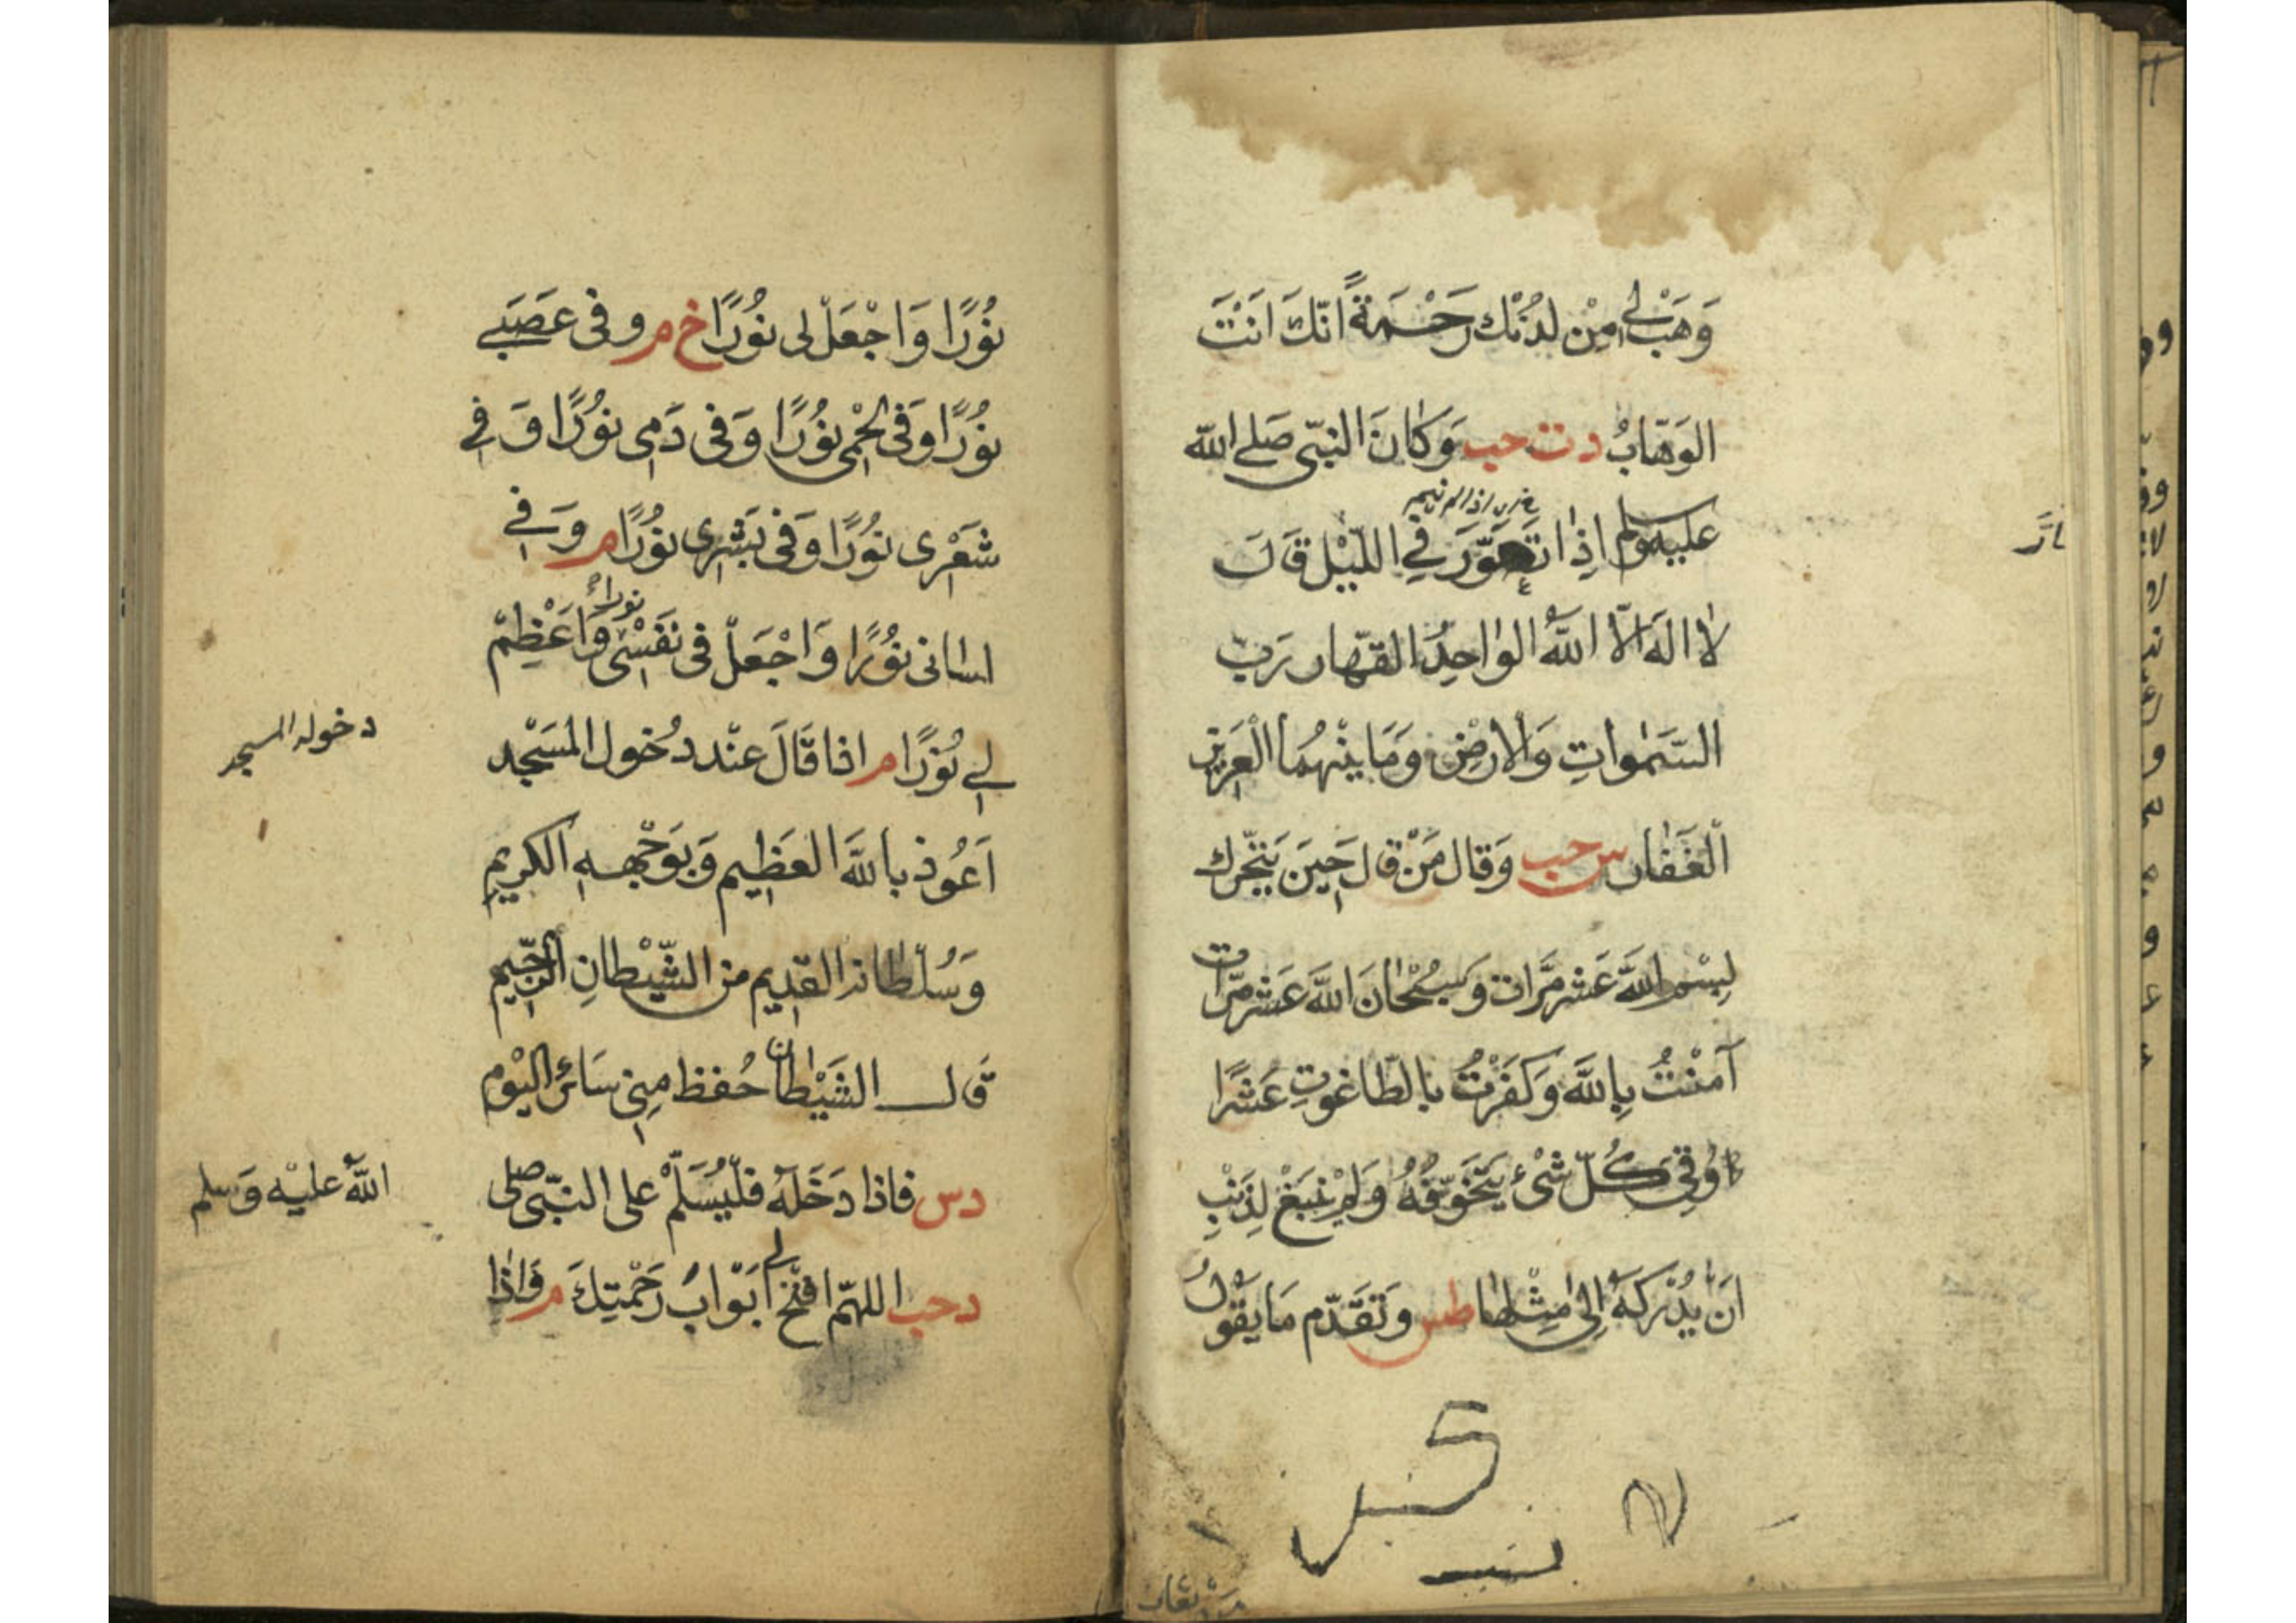 وَهَبْ لِي مِنْ لَدُنْكَ رَحْمَةً اِنَّكَ اَنْتَ
الوَهّابُ د ت حب وَكانَ النّبّى صَلى الله
عليه وسلم اِذا تَضَوَّرَ فِي اللّيْل قَالَ
لاٰ الٰهَ الاّ اللّٰهُ الوٰاحِدُ القهّار رَبّ
السّمٰواتِ وَالْارضِ وَمَا بيْنهُمَا الْعَزيز
الْغَفّار س حب وَقال مَنْ قال حِينَ يَتَحّرك
بِسْم اللّهَ عَشر مَرَّات وَسُبْحٰانَ اللّهَ عَشر مرّات
آمنْتُ بِاللّهَ وَكَفَرْتُ بالطّاغوتِ عَشرًا
وُقِىَ كُلّ شْئ يَتَخَوّفهُ وَلَمْ ينبَغْ لِذَنْبِ
اَن يُدْركهُ اِلىٰ مِثْلهٰا طس وَتَقَدّم مَا يقولُ
نُوُرًا وَاجْعَلْ لى نوُرًا خ م و فى عَصَبى
نوُرًا وَفى لحْمى نوُرًا وَفى دَمى نوُرًا وَ فى
شَعْرى نوُرًا وَفى بَشرى نوُرًا م وَ فى
لسانى نوُرًا وَاجْعَلْ فى نفَسْى نورا وَاَعْظِمْ
لى نُورًا م اذا قَالَ عنْد دُخول المسَجْد
دخول المسجد
اَعُوذ باللّهَ العَظِيم وَبوَجْهِهِ الكريم
وَسُلْطانه القدِيم من الشّيْطانِ الرّجيم
قَال الشَيْطان حُفظ مِنى سَائرَ اليْوم
د س فاذا دَخَلهُ فلْيُسَلّمْ على النبّى صلى
اللّهُ عليْه وَسلم
د حب اللهّم افتْح لى ابَوْابَ رَحْمتِكَ م وَاذٰا